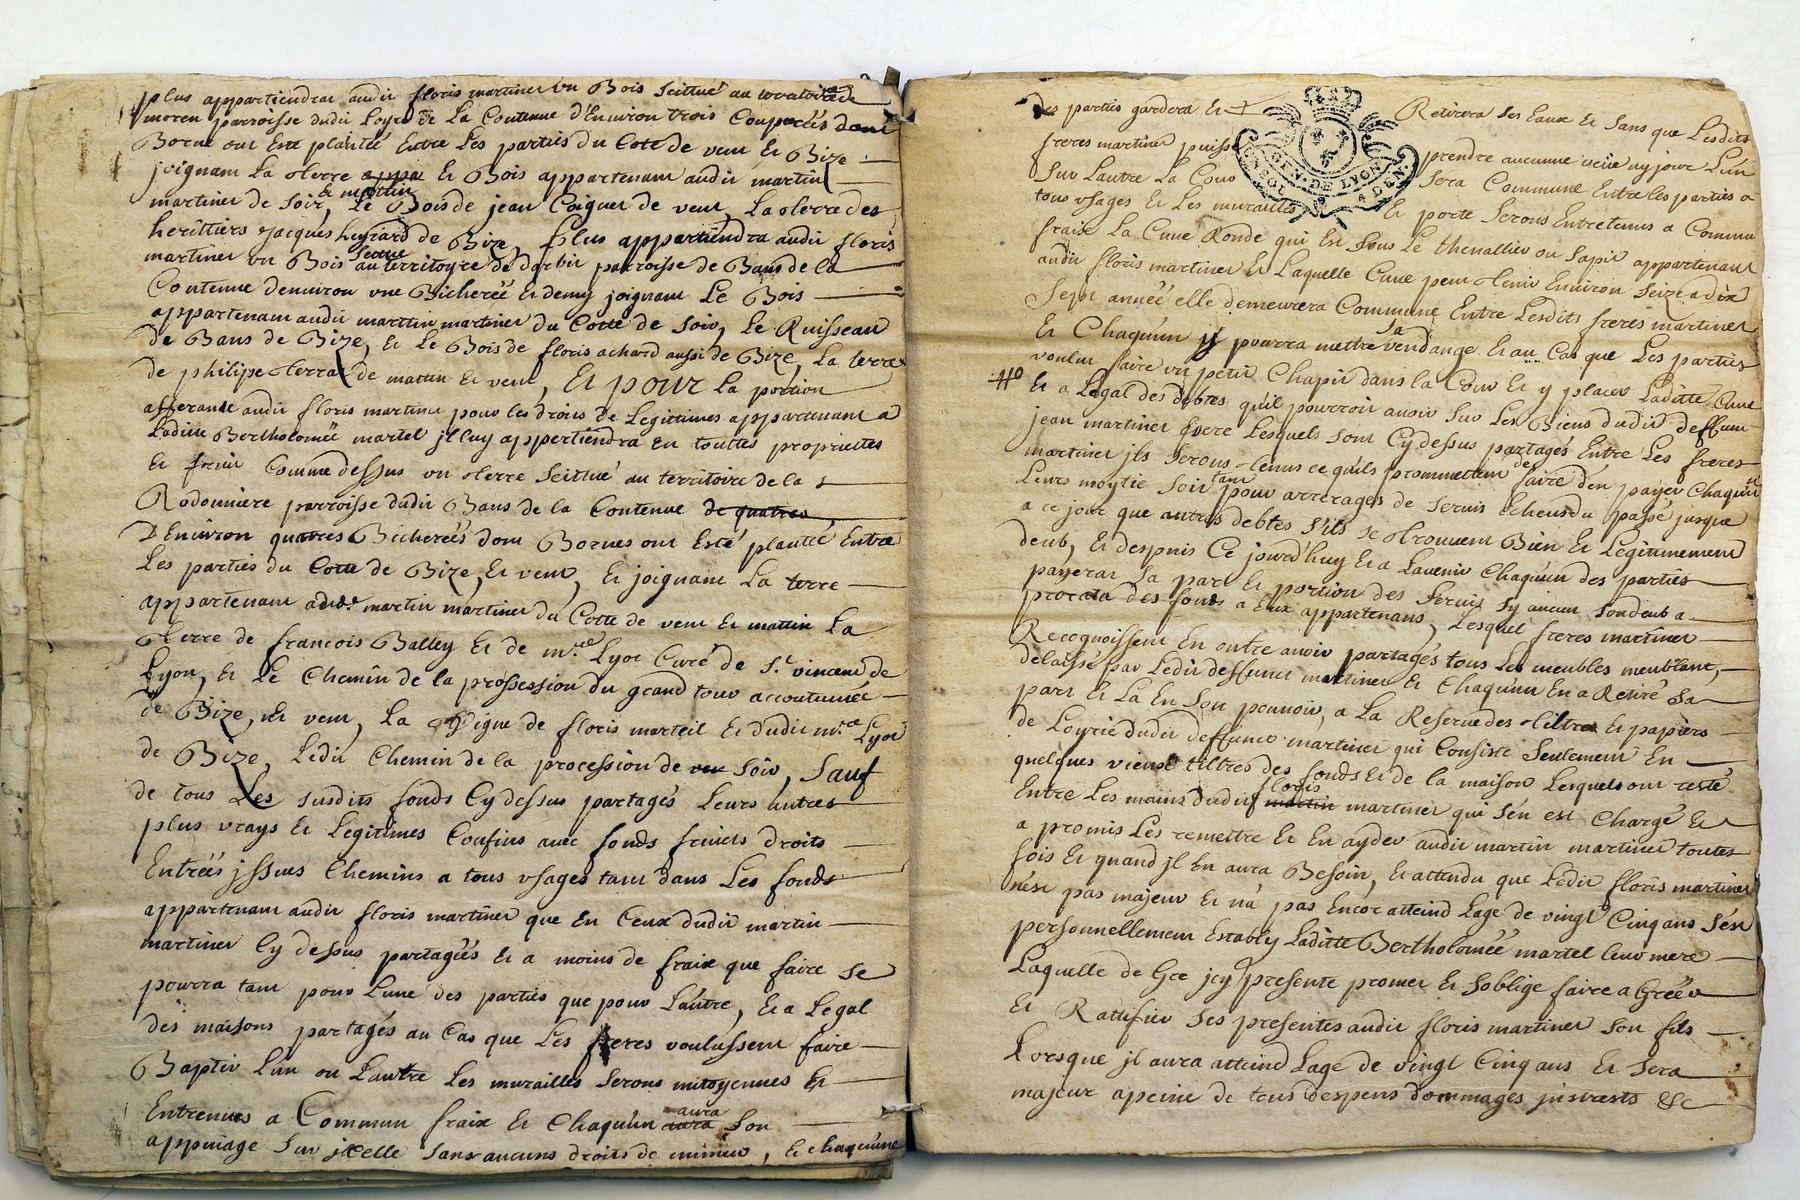 plus appartiendra audit floris martinier un Bois scittué au
parroisse dudit Loyre de La Contenue d'Environ trois Couppeés dont
Borne ont Eté plantée Entre Les parties du Coté de vent Et Bize
joignant La terre Et Bois appartenant audit martin
martinier de soir, & mattin Le Bois de jean Coignet de vent, La terre des
herittiers jacques de Bize, plus appartiendra audit floris
martinier un Bois scittué au territoyre de darbir parroisse de Bans de la
Contenue denviron une Bicherée Et demy joignant Le Bois
appartenant audit martin martinier du Cotté de soir, Le Ruisseau
de Bans de Bize, Et Le Bois de floris achard aussi de Bize, La terre
de philipe terra de mattin Et vent, Et pour La portion
afferante audit floris martinier pour les droits de Legittimes appartenant a
Laditte Bertholomée martel jl luy appertiendra en touttes propriettés
Et fruit Comme dessus un terre Scittué au territoire de la
Rodonniere parroisse dudit Bans de la Contenue de quatres
D'Environ quatres Bicherées dont Bornes ont Esté plantée Entre
Les parties du Cotté de Bize, Et vent, Et joignant La terre
appartenant adit martin martinier du Cotté de vent Et mattin La
terre de francois Balley Et de mre Lyot Curé de St vincent de
Lyon, Et Le Chemin de la prossession du grand tour accoutumée
de Bize, Et vent, La vigne de floris marteil Et dudit mre Lyot
de Bize, Ledit Chemin de la procession de vent Soir, Sauf
de tous Les susdits fonds Cy dessus partagés Leurs autres
plus vrays Et Legitimes Confins avec fonds fruicts droits
Entrées jssues Chemins a tous vsages tant dans Les fonds
appartenant audit floris martinier que En Ceux dudit martin
martinier Cy dessus partagées Et a moins de fraix que faire se
pourra tant pour Lune des parties que pour Lautre, Et a Legal
des maisons partagés au Cas que Les freres voulussent faire
Baptir Lun ou Lautre Les murailles Seront mitoyennes Et
Entrenues a Commun fraix Et Chaquun aura Son
appuiage Sur jcelle Sans aucuns droits de , Et chaquune
des parties gardera Et Retirera Ses Eaux Et Sans que Lesdits
freres martinier puisse prendre aucunne veüe ny jour Lun
Sur Lautre La Cour Sera Commune Entre les parties a
tous vsages Et Les murailles Et porte Seront Entretenus a Commun
fraix La Cuve Ronde qui Est Sous Le thenallier ou Sapit appartenant
audit floris martinier Et Laquelle Cuve peut tenir Environ Seize a dix
Sept année elle demeurera Commune Entre Lesdits freres martinier
Et Chaquun y pourra mettre sa vendange Et au Cas que Les parties
voulut faire un petit Chapit dans la Cour Et y placer Laditte Cuve
Et a Legal des debtes qu'il pourroit avoir Sur Les Biens dudit deffunt
jean martinier pere Lesquels sont Cy dessus partagés Entre Les freres
martinier jls Seront tenus ce qu'ils prommettent de faire d'en payer Chaquun
Leurs moytié Soit tant pour arrerages de Servis Echeus du passé jusque
a ce jour que autres debtes S'ils se trouvent Bien Et Legitimement
deub, Et despuis Ce jourd'huy Et a Lavenir Chaquun des parties
payerat Sa part Et portion des Servis Sy aucun Sont deub a
prorata des fonds a Eux appartenans, Lesquel freres martinier
Recognoissent En outre avoir partagés tous Les meubles meublant,
delaissé par Ledit deffunct martinier Et Chaquun En a Retiré Sa
part Et La En Son pouvoir, a La Reserve des tiltres Et papiers
de Loyrie dudit deffunct martinier qui Consiste Seulement En
quelques vieux tiltres des fonds Et de la maison Lesquels ont resté
Entre Les mains dudit floris martin martinier qui S'en est Chargé Et
a promis Les remettre Et En ayder audit martin martinier toutes
fois Et quand jl En aura Besoin, Et attendu que Ledit floris martinier
n'est pas majeur Et n'a pas Encor atteind Lage de vingt Cinq ans S'est
personnellement Estably Laditte Bertholomée martel leur mere
Laquelle de Gre jcy presente promet Et Soblige faire a Gréer
Et Rattifier Ses presentes audit floris martinier Son fils
Lorsque jl aura atteind Lage de vingt Cinq ans Et Sera
majeur a peine de tous despens dommages jnterests &c
GEN. DE LYON